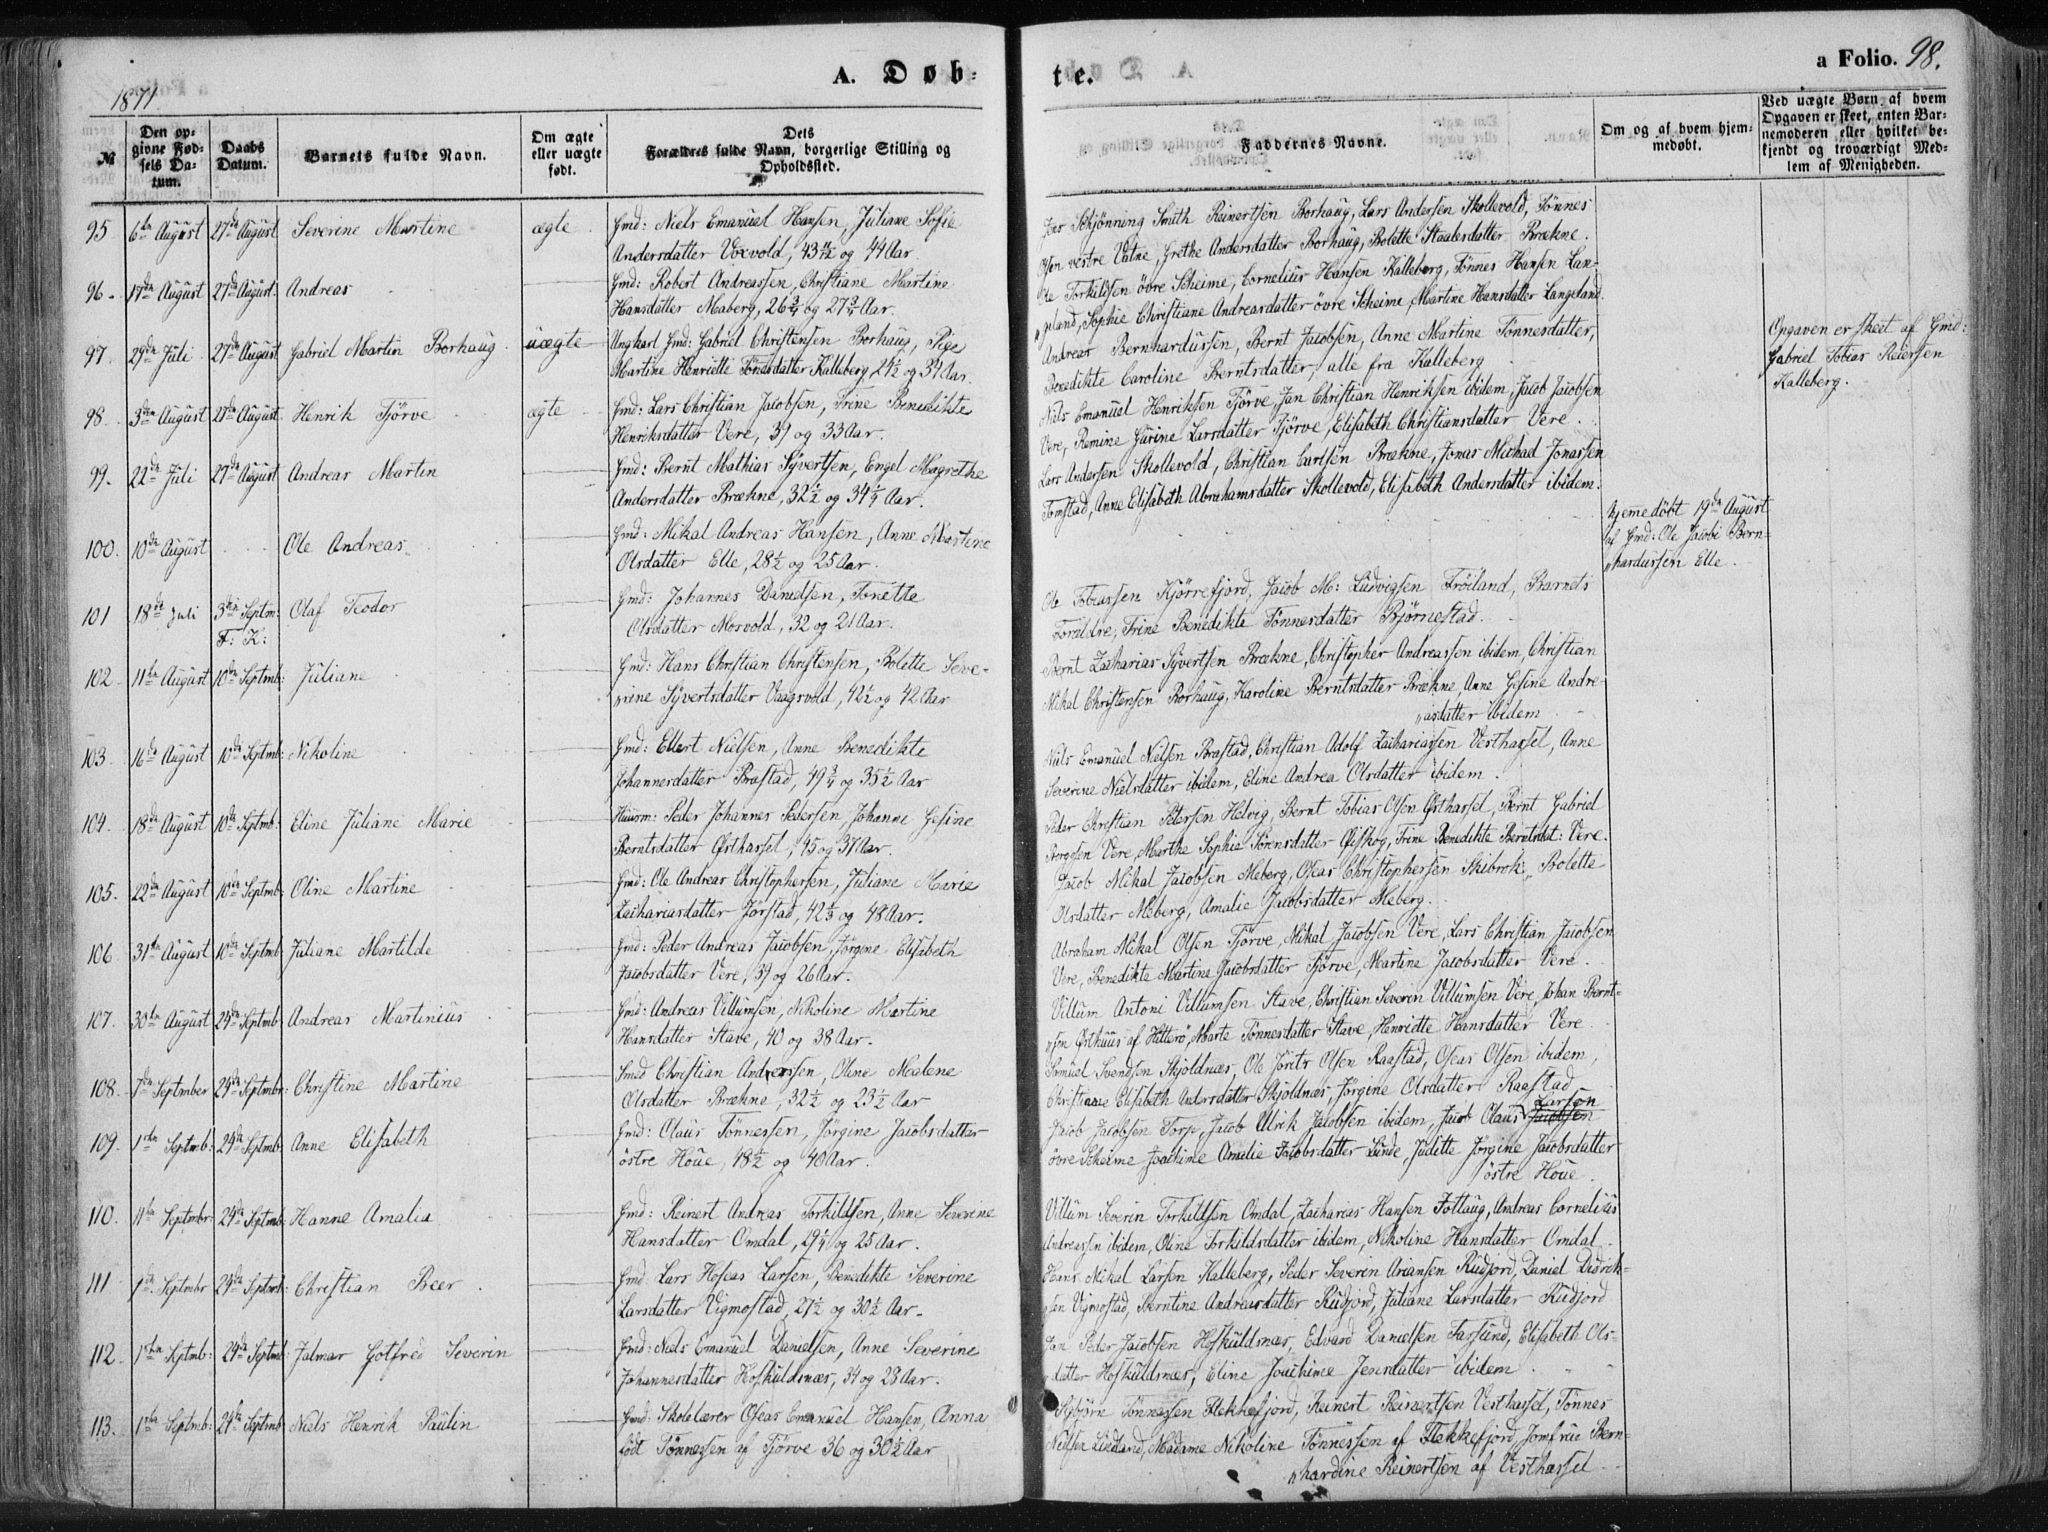 A. Døb-
te.
a Folio. 98.
1871.
№
Den op-
givne Fød-
sels Da-
tum.
Daabs
Datum.
Barnets fulde Navn.
Om ægte
eller uægte
født.
Dets
Forældres fulde Navn, borgerlige Stilling og
Opholdssted.
Faddernes Navne.
Om og af hvem hjem-
medøbt.
Ved uægte Børn, af hvem
Opgaven er skeet, enten Bar-
nemoderen eller hvilket be-
kjendt og troværdigt Med-
lem af Menigheden.
95 6te August 27de August Severine Martine ægte Gmd: Niels Emanuel Hansen, Juliane Sofie
Andersdatter Voxvold, 43 og 44 Aar.
Jens Schjønning Smith Reinertsen Borhaug, Lars Andersen Skollevold, Tönnes
Olsen vestre Vatne, Grethe Andersdatter Borhaug, Bolette Staalesdatter Brækne.
96 17de August 27de August Andreas Gmd: Robert Andreassen, Christiane Martine
Hansdatter Maberg, 26 3/4 og 27 3/4 Aar.
Ole Torkildsen övre Scheime, Cornelius Hansen Kalleberg, Tönnes Hansen Lan-
geland, Sophie Christiane Andreasdatter övre Scheime, Martine Hansdatter Langeland.
97. 29de Juli 27de August Gabriel Martin Borhaug uægte Ungkarl Gmd: Gabriel Christensen Borhaug, Pige
Martine Henriette Tönnesdatter Kalleberg, 24 1/2 og 31 Aar.
Andreas Bernhardussen, Bernt Jacobsen, Anne Martine Tönnesdatter,
Benedikte Caroline Berntsdatter, alle fra Kalleberg
Opgaven er skeet af Gmd:
Gabriel Tobias Reiersen
Kalleberg.
98. 3die August 27de August Henrik Tjörve ægte Gmd: Lars Christian Jacobsen, Trine Benedikte
Henriksdatter Vere, 39 og 33 Aar.
Niels Emanuel Henriksen Tjörve, Jan Christian Henriksen ibidem, Jacob Jacobsen
Vere, Remine Gurine Larsdatter Tjörve, Elisabeth Christiansdatter Vere.
99. 22de Juli 27de August Andreas Martin Gmd: Bernt Mathias Syvertsen, Engel Magrethe
Andersdatter Brækne, 32 1/2 og 34 1/4 Aar.
Lars Andersen Skollevold, Christian Carlsen Brækne, Jonas Michael Jonassen
Tomstad, Anne Elisabeth Abrahamsdatter Skollevold, Elisabeth Andersdatter ibidem.
100. 10de August Ole Andreas Gmd: Mikal Andreas Hansen, Anne Martine
Olsdatter Elle, 28 1/2 og 25 Aar.
hjemedöbt 19de August
af Gmd: Ole Jacobi Bern-
hardussen Elle.
101 18de Juli 3die Septm: F: K: Olaf Teodor Gmd: Johannes Danielsen, Tonette
Olsdatter Morvold, 32 og 21 Aar.
Ole Tobiassen Kjörrefjord, Jacob M: Ludvigsen Fröiland, Barnets
Forældre, Trine Benedikte Tönnesdatter Björnestad.
102. 11te August 10de Septmb: Juliane Gmd: Hans Christian Christensen, Bolette Seve-
rine Syvertsdatter Vaagsvold, 42 1/2 og 42 Aar
Bernt Zacharias Syvertsen Brækne, Christopher Andreassen ibidem, Christian
Mikal Christensen Borhaug, Karoline Berntsdatter Brækne, Anne Gesine Andre-
asdatter ibidem
103. 16de August 10de Septmb: Nikoline Gmd: Ellert Nielsen, Anne Benedikte
Johannesdatter Brastad, 49 3/4 og 35 1/2 Aar
Niels Emanuel Nielsen Brastad, Christian Adolf Zachariassen Vesthassel, Anne
Severine Nielsdatter ibidem, Eline Andrea Olsdatter ibidem.
104. 18de August 10de Septmb: Eline Juliane Marie Huusm: Peder Johannes Pedersen, Johanne Gesine
Berntsdatter Østhassel, 45 og 37 Aar.
Peder Christian Petersen Helvig, Bernt Tobias Olsen Østhassel, Bernt Gabriel
Borgesen Vere, Marthe Sophie Tönnesdatter Øiskog, Trine Benedikte Berntsdat: Vere.
105. 22de August 10de Septmb: Oline Martine Gmd: Ole Andreas Christophersen, Juliane Marie
Zachariasdatter Jörstad, 42 og 48 Aar.
Jacob Mikal Jacobsen Meberg, Oseas Christophersen Skibrok, Bolette
Olsdatter Meberg, Amalie Jacobsdatter Meberg.
106 31te August 10de Septmb: Juliane Martilde Gmd: Peder Andreas Jacobsen, Jörgine Elisabeth
Jacobsdatter Vere, 39 og 26 Aar.
Abraham Mikal Olsen Tjörve, Mikal Jacobsen Vere, Lars Christian Jacobsen
Vere, Benedikte Martine Jacobsdatter Tjörve, Martine Jacobsdatter Vere.
107. 30te August 24de Septmb: Andreas Martinius Gmd: Andreas Villumsen, Nikoline Martine
Hansdatter Stave, 40 og 38 Aar.
Villum Antoni Villumsen Stave, Christian Severin Villumsen Vere, Johan Bernt-
sen Østhuus af Hitterö, Marte Tönnesdatter Stave, Henriette Hansdatter Vere
108. 7de Septmber 24de Septmbr: Christine Martine Smed Christian Andersen, Oline Malene
Olsdatter Brækne, 32 1/2 og 23 1/2 Aar
Samuel Svendsen Skjoldnæs, Ole Jörits Olsen Raastad, Oseas Olsen ibidem,
Christiane Elisabeth Andersdatter Skjoldnæs, Jörgine Olsdatter Raastad
109. 1ste Septmb: 24de Septmb: Anne Elisabeth Gmd: Olaus Tönnessen, Jörgine Jacobsdatter
östre Houe, 48 1/2 og 40 Aar.
Larsen
Jacob Jacobsen Torp, Jacob Ulrik Jacobsen ibidem, Jacob Olaus Jacobsen
övre Scheime Joachime Amalie Jacobsdatter Lunde, Juditte Jörgine Jacobsdatter
östre Houe.
110. 11te Septmbr: 24de Septmb: Hanne Amalia Gmd: Reinert Andreas Torkildsen, Anne Severine
Hansdatter Omdal, 29 1/4 og 25 Aar.
Villum Severin Torkildsen Omdal, Zacharias Hansen Jottaug, Andreas Cornelius
Andreassen ibidem, Oline Torkildsdatter ibidem, Nikoline Hansdatter Omdal
111 1ste Septmbr 24de Septmb: Christian Beer Gmd Lars Hoseas Larsen, Benedikte Severine
Larsdatter Vigmostad, 27 1/2 og 30 1/2 Aar.
Hans Mikal Larsen Kalleberg, Peder Severin Ariansen Rudjord, Daniel Didrik-
sen Vigmostad, Berntine Andreasdatter Rudjord, Juliane Larsdatter Rudjord
112. 1ste Septmb: 24de Septmb: Jalmar Gotfred Severin Gmd: Niels Emanuel Danielsen, Anne Severine
Johannesdatter Hoskuldsnæs, 34 og 28 Aar.
Jan Peder Jacobsen Hoskuldsnæs, Edvard Danielsen Farsund, Elisabeth Ols-
datter Hoskuldsnæs, Eline Joachime Jensdatter ibidem.
113. 1ste Septmb: 24de Septmb: Niels Henrik Paulin Gmd: Skolelærer Oseas Emanuel Hansen, Anna
födt Tönnessen af Tjörve 36 og 30 1/2 Aar
Asbjörn Tönnessen Flekkefjord, Reinert Reinertsen Vesthassel, Tönnes
Nielsen Lundland, Madame Nikoline Tönnessen af Flekkefjord, Jomfrue Bern-
hardine Reinertsen af Vesthassel